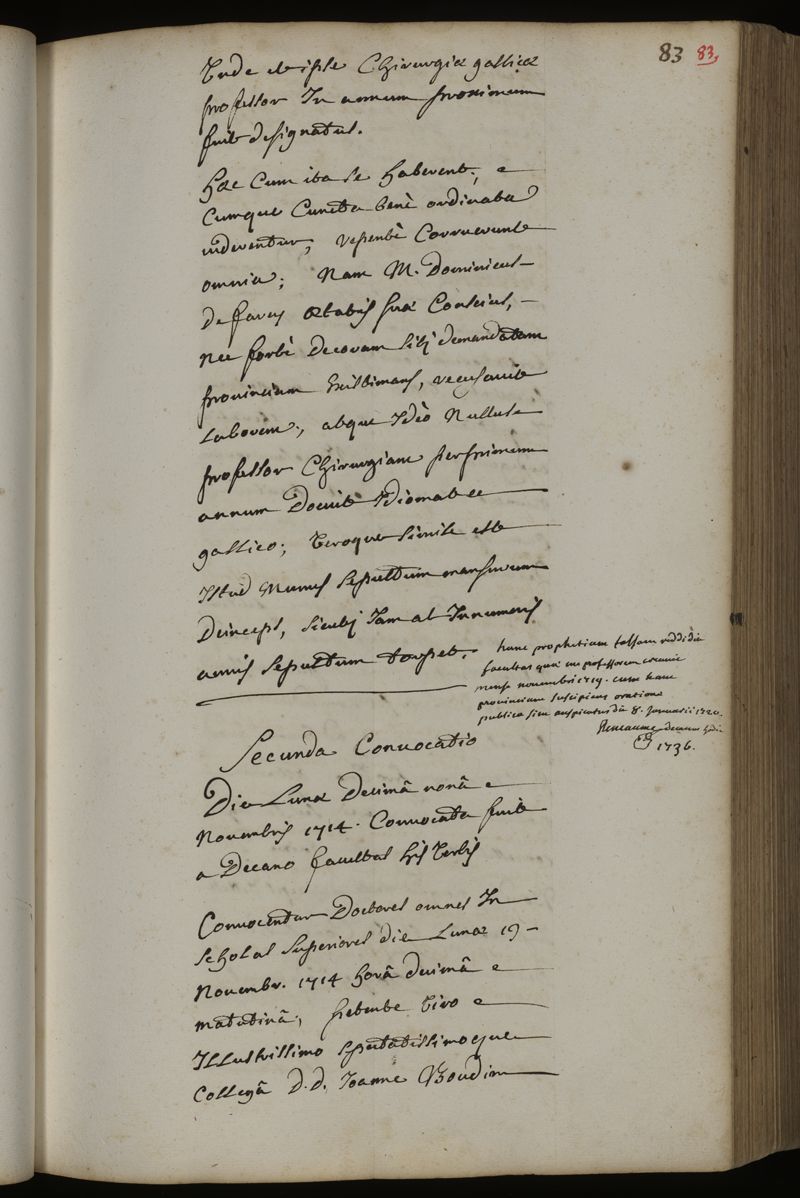 83 83
Unde et ipse Chirurgiæ gallicæ
professor In annum proximum
fuit designatus.
Hæc Cum ita se haberent,
Cumque Cuncta benè ordinata
viderentur, repentè Corruerunt
omnia; Nam M. Dominicus
De farcy ætatis suæ Conscius,
Nec fortè Decoram sibj demandatam
provinciam Existimans, recusavit
Laborem, atque Ideò Nullus
professor Chirurgiam per primum
annum Docuit Idiomate
gallico; Veroque simile est
Istud Munus sepultum mansurum
Deinceps, sicutj Jam ab Innumeris
annis sepultum torpet.
hanc prophetiam falsam reddidit
facultas quæ me professorem
mense novembri 1719. cum hanc
provinciam suscipiens oratione
publica sim auspicatus die 8. Januarii 1720.
Reneaume decanus hodie
1736.
Secunda Convocatio
Die Lunæ Decimâ nonâ
Novembris 1714. Convocata fuit
a Decano facultas his Verbis
Convocentur Doctores omnes In
scholas superiores die Lunæ 19
Novembr. 1714 horâ Decimâ
matutinâ, petente Viro
Illustrissimo spectatissimoque
Collegâ D. D. Joanne Boudin